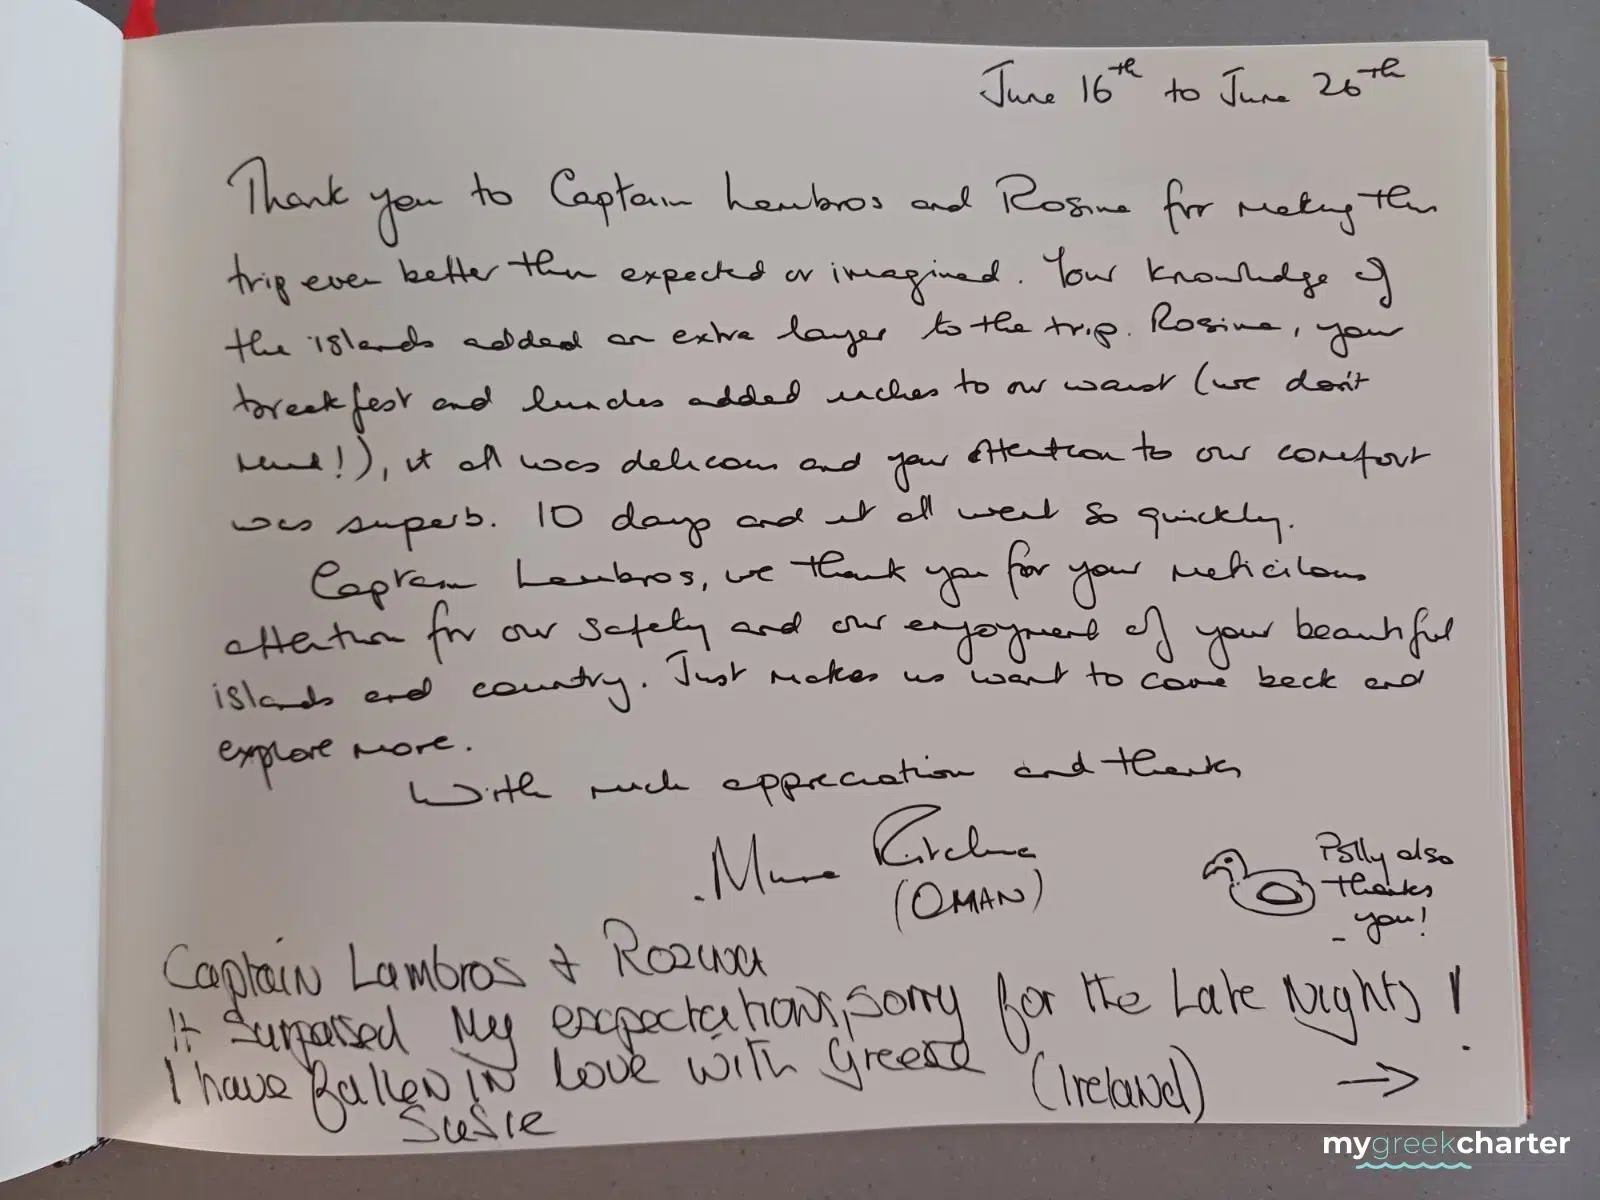 June 16th to June 26th
Thank you to Captain Lambros and Rosina for making this
trip even better than expected or imagined. Your knowledge of
the islands added an extra layer to the trip. Rosina, your
breakfast and lunches added inches to our waist (we don't
mind!), it all was delicious and your attention to our comfort
was superb. 10 days and it all went so quickly.
Captain Lambros, we thank you for your meticilous
attention for our safety and our enjoyment of your beautiful
islands and country. Just makes us want to come back and
explore more.
With much appreciation and thanks
(OMAN)
Polly also
thanks
you!
Captain Lambros &
It Surpassed My expectations, sorry for the Late Nights!
I have fallen IN Love with Greece
(Ireland)
Susie
mygreekcharter